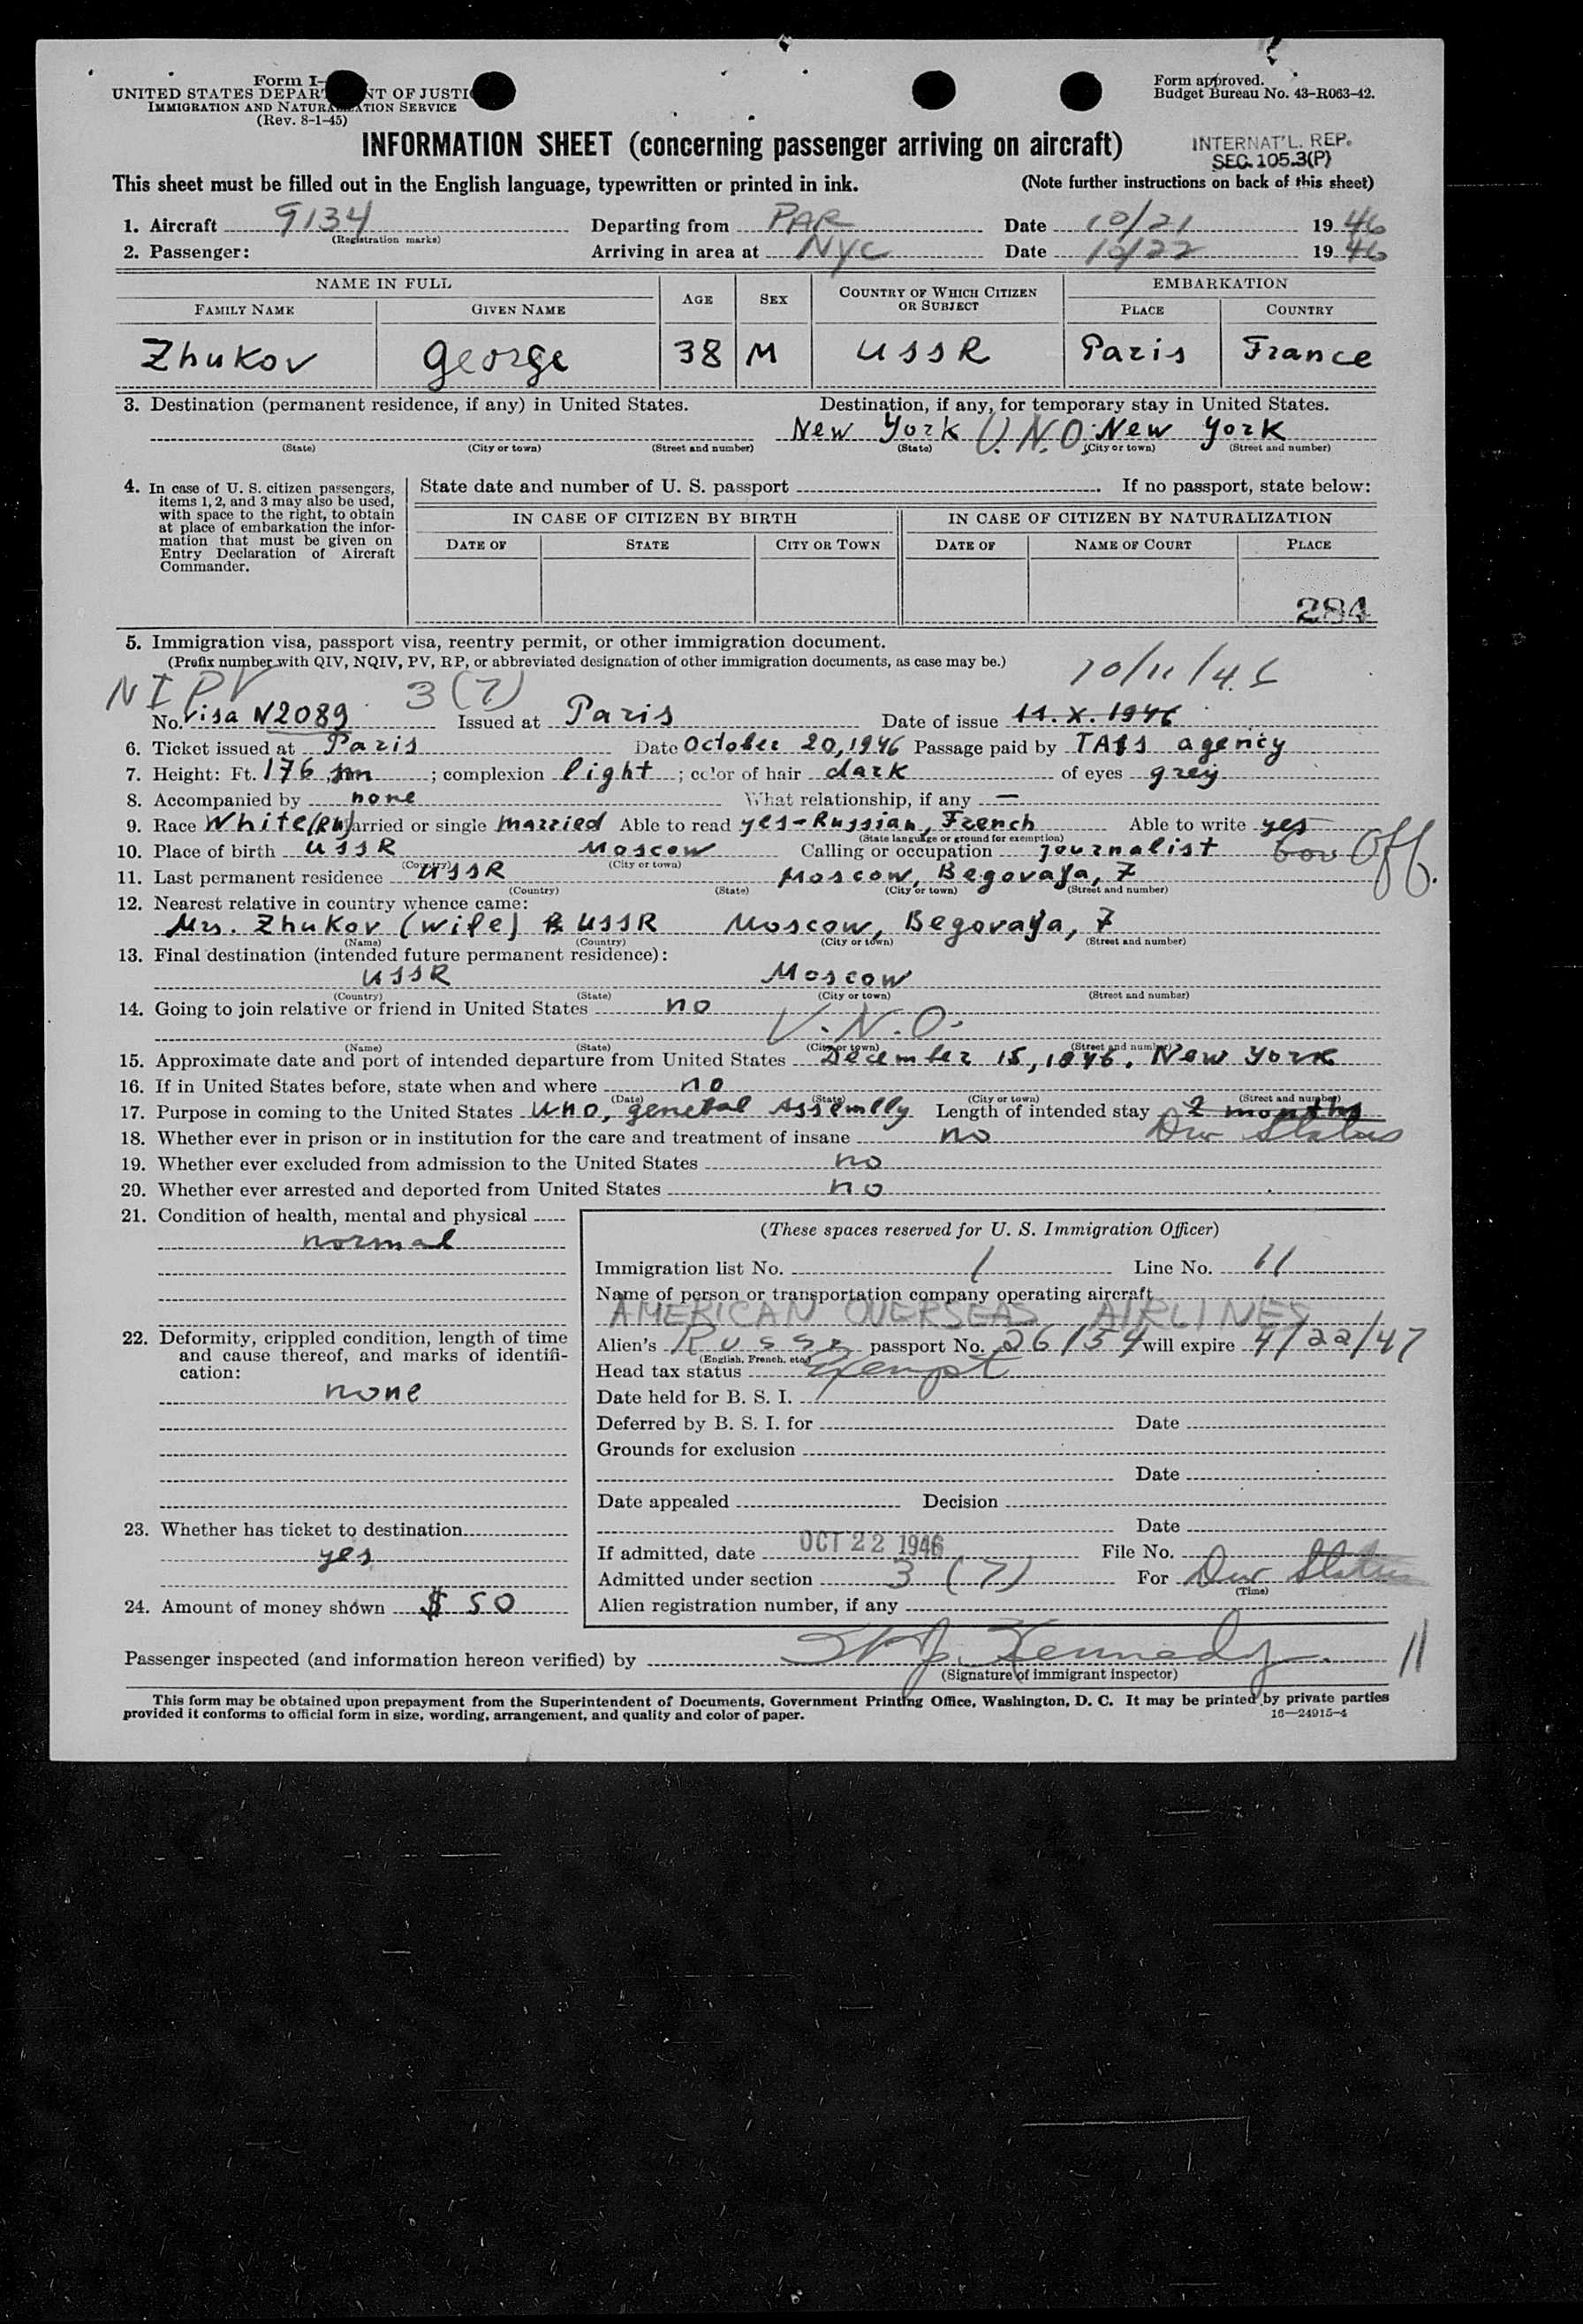 Form I-
UNITED STATES DEPARTMENT OF JUSTICE
IMMIGRATION AND NATURALIZATION SERVICE
(Rev. 8-1-45)
Form approved.
Budget Bureau No. 43-R063-42.
INFORMATION SHEET (concerning passenger arriving on aircraft)
INTERNAT'L. REP.
SEC. 105.3(P)
This sheet must be filled out in the English language, typewritten or printed in ink. (Note further instructions on back of this sheet)
1. Aircraft 9134 Departing from PAR Date 10/21 1946
(Registration marks)
2. Passenger: Arriving in area at NYC Date 10/22 1946
NAME IN FULL AGE SEX COUNTRY OF WHICH CITIZEN OR SUBJECT EMBARKATION
FAMILY NAME GIVEN NAME PLACE COUNTRY
Zhukov George 38 M USSR Paris France
3. Destination (permanent residence, if any) in United States. Destination, if any, for temporary stay in United States.
New York U.N.O. New York
(State) (City or town) (Street and number) (State) (City or town) (Street and number)
4. In case of U. S. citizen passengers, items 1, 2, and 3 may also be used, with space to the right, to obtain at place of embarkation the information that must be given on Entry Declaration of Aircraft Commander.
State date and number of U. S. passport . If no passport, state below:
IN CASE OF CITIZEN BY BIRTH IN CASE OF CITIZEN BY NATURALIZATION
DATE OF STATE CITY OR TOWN DATE OF NAME OF COURT PLACE
284
5. Immigration visa, passport visa, reentry permit, or other immigration document.
(Prefix number with QIV, NQIV, PV, RP, or abbreviated designation of other immigration documents, as case may be.)
NI PV 3(7) 10/11/46
No. visa N2089 Issued at Paris Date of issue 11.X.1946
6. Ticket issued at Paris Date October 20, 1946 Passage paid by TASS agency
7. Height: Ft. 176 ; complexion light ; color of hair dark of eyes grey
8. Accompanied by none What relationship, if any —
9. Race White (Ru) Married or single married Able to read yes - Russian, French Able to write yes
(State language or ground for exemption)
10. Place of birth USSR Moscow Calling or occupation journalist Gov Off.
(Country) (City or town)
11. Last permanent residence USSR Moscow, Begovaya, 7
(Country) (State) (City or town) (Street and number)
12. Nearest relative in country whence came:
Mrs. Zhukov (wife) USSR Moscow, Begovaya, 7
(Name) (Country) (City or town) (Street and number)
13. Final destination (intended future permanent residence):
USSR Moscow
(Country) (State) (City or town) (Street and number)
14. Going to join relative or friend in United States no
U.N.O.
(Name) (State) (City or town) (Street and number)
15. Approximate date and port of intended departure from United States December 15, 1946. New York
16. If in United States before, state when and where no
(Date) (State) (City or town) (Street and number)
17. Purpose in coming to the United States UNO, general Assembly Length of intended stay 2 months
18. Whether ever in prison or in institution for the care and treatment of insane no Dur Status
19. Whether ever excluded from admission to the United States no
20. Whether ever arrested and deported from United States no
21. Condition of health, mental and physical
normal
22. Deformity, crippled condition, length of time and cause thereof, and marks of identification:
none
23. Whether has ticket to destination
yes
24. Amount of money shown $ 50
(These spaces reserved for U. S. Immigration Officer)
Immigration list No. 1 Line No. 11
Name of person or transportation company operating aircraft
AMERICAN OVERSEAS AIRLINES
Alien's Russ passport No. 26154 will expire 4/22/47
(English, French, etc.)
Head tax status Exempt
Date held for B. S. I.
Deferred by B. S. I. for Date
Grounds for exclusion
Date
Date appealed Decision
Date
If admitted, date OCT 22 1946 File No.
Admitted under section 3 (7) For Dur Status
(Time)
Alien registration number, if any
Passenger inspected (and information hereon verified) by Kennedy 11
(Signature of immigrant inspector)
This form may be obtained upon prepayment from the Superintendent of Documents, Government Printing Office, Washington, D. C. It may be printed by private parties
provided it conforms to official form in size, wording, arrangement, and quality and color of paper. 16—24915-4